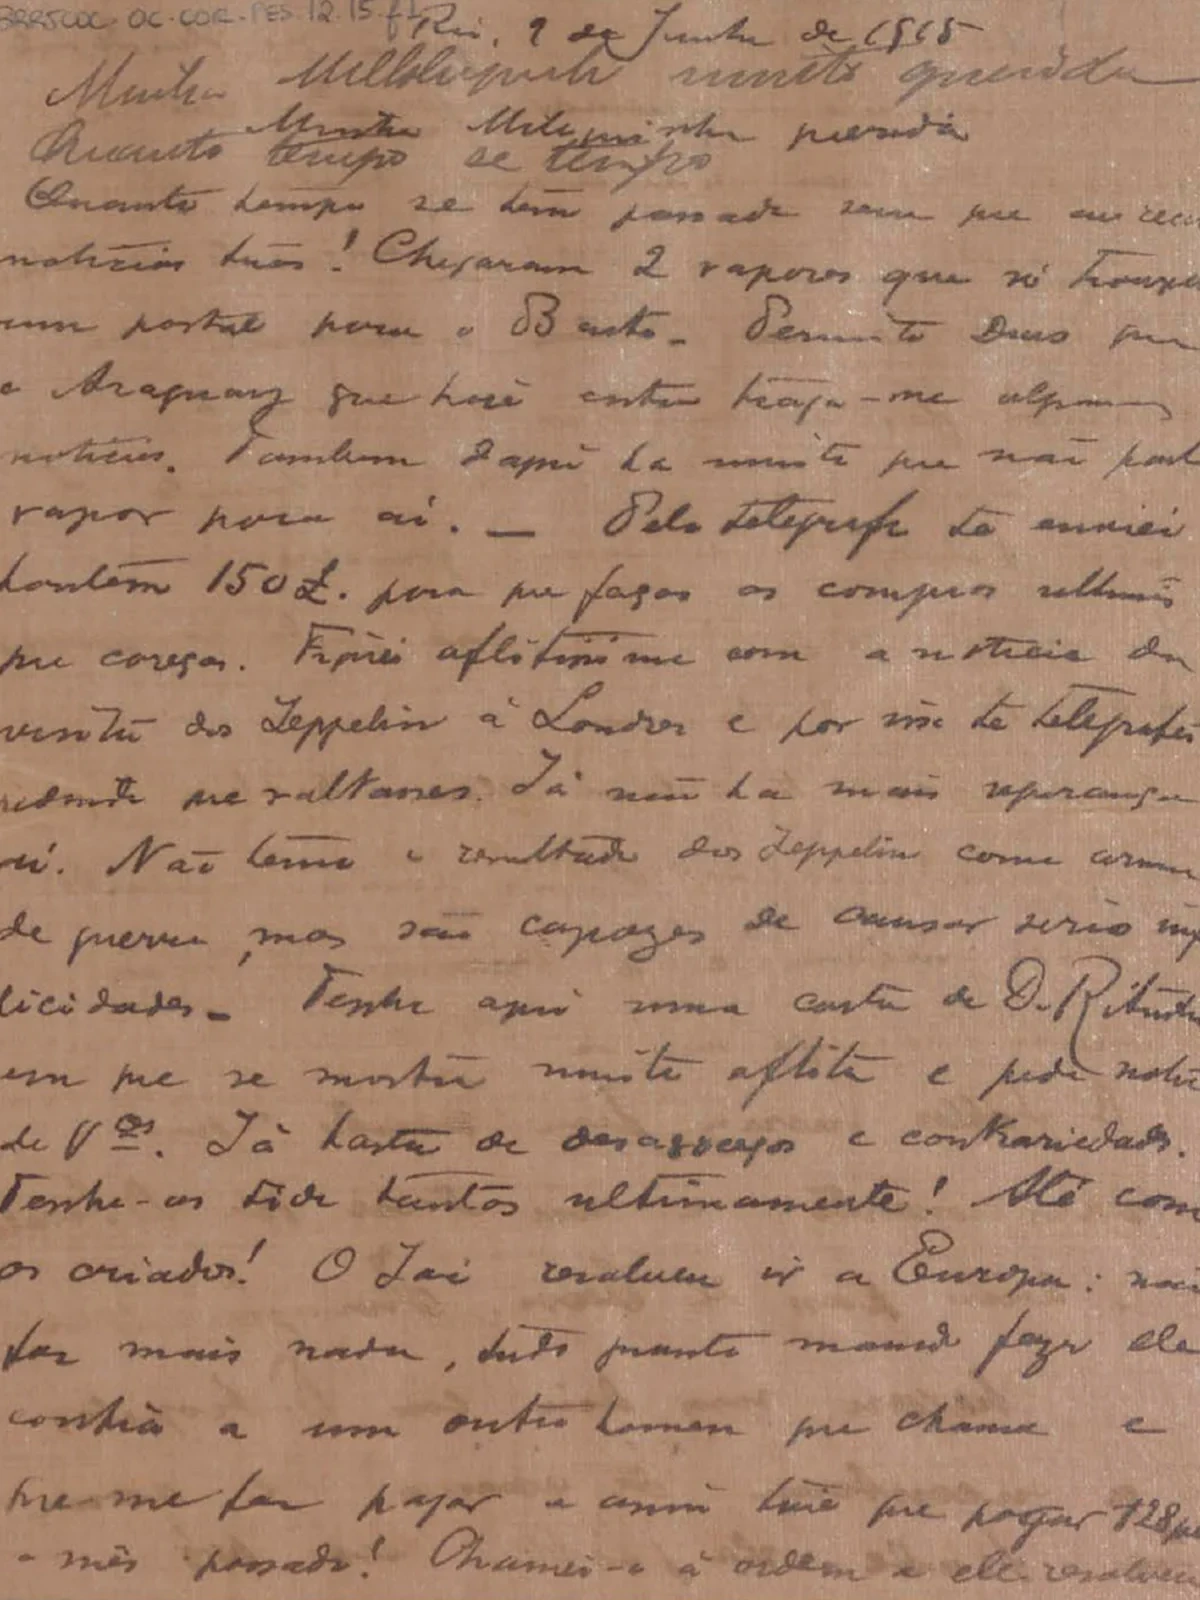 BRRJCOC OC.COR.PES.12.15.f1
Rio, 9 de Junho de 1915
Minha muito querida
Minha querida
Quanto tempo se tempo
Quanto tempo se tem passado sem que eu rece
noticias tuas! Chegaram 2 vapores que só trouxe
um postal para o Basto. Permita Deus que
o Araguay que hoje entra traga-me algumas
noticias. Tambem daqui ha muito que não part
vapor para ai. — Pelo telegrafo te enviei
hontem 150£. para que faças as compras ultimas
que careças. Fiquei aflitissimo com a noticia da
visita dos Zeppelin à Londres e por isso te telegrafei
pedindo que voltasses. Já não ha mais esperança
ai. Não temo o resultado dos Zeppelin como arma
de guerra, mas são capazes de causar serias inf
licidades. Tenho aqui uma carta de D. Ritinha
em que se mostra muito aflita e pede noti
de Vas. Já basta de desasocegos e contrariedades.
Tenho-os tido tantos ultimamente! Até com
os criados! O Jai resolveu ir a Europa: não
faz mais nada, tudo quanto mando fazer ele
contra a um outro homem que chama e
que me faz pagar e assim tive que pagar 128
o mês passado! Chamei-o à ordem e ele resolveu